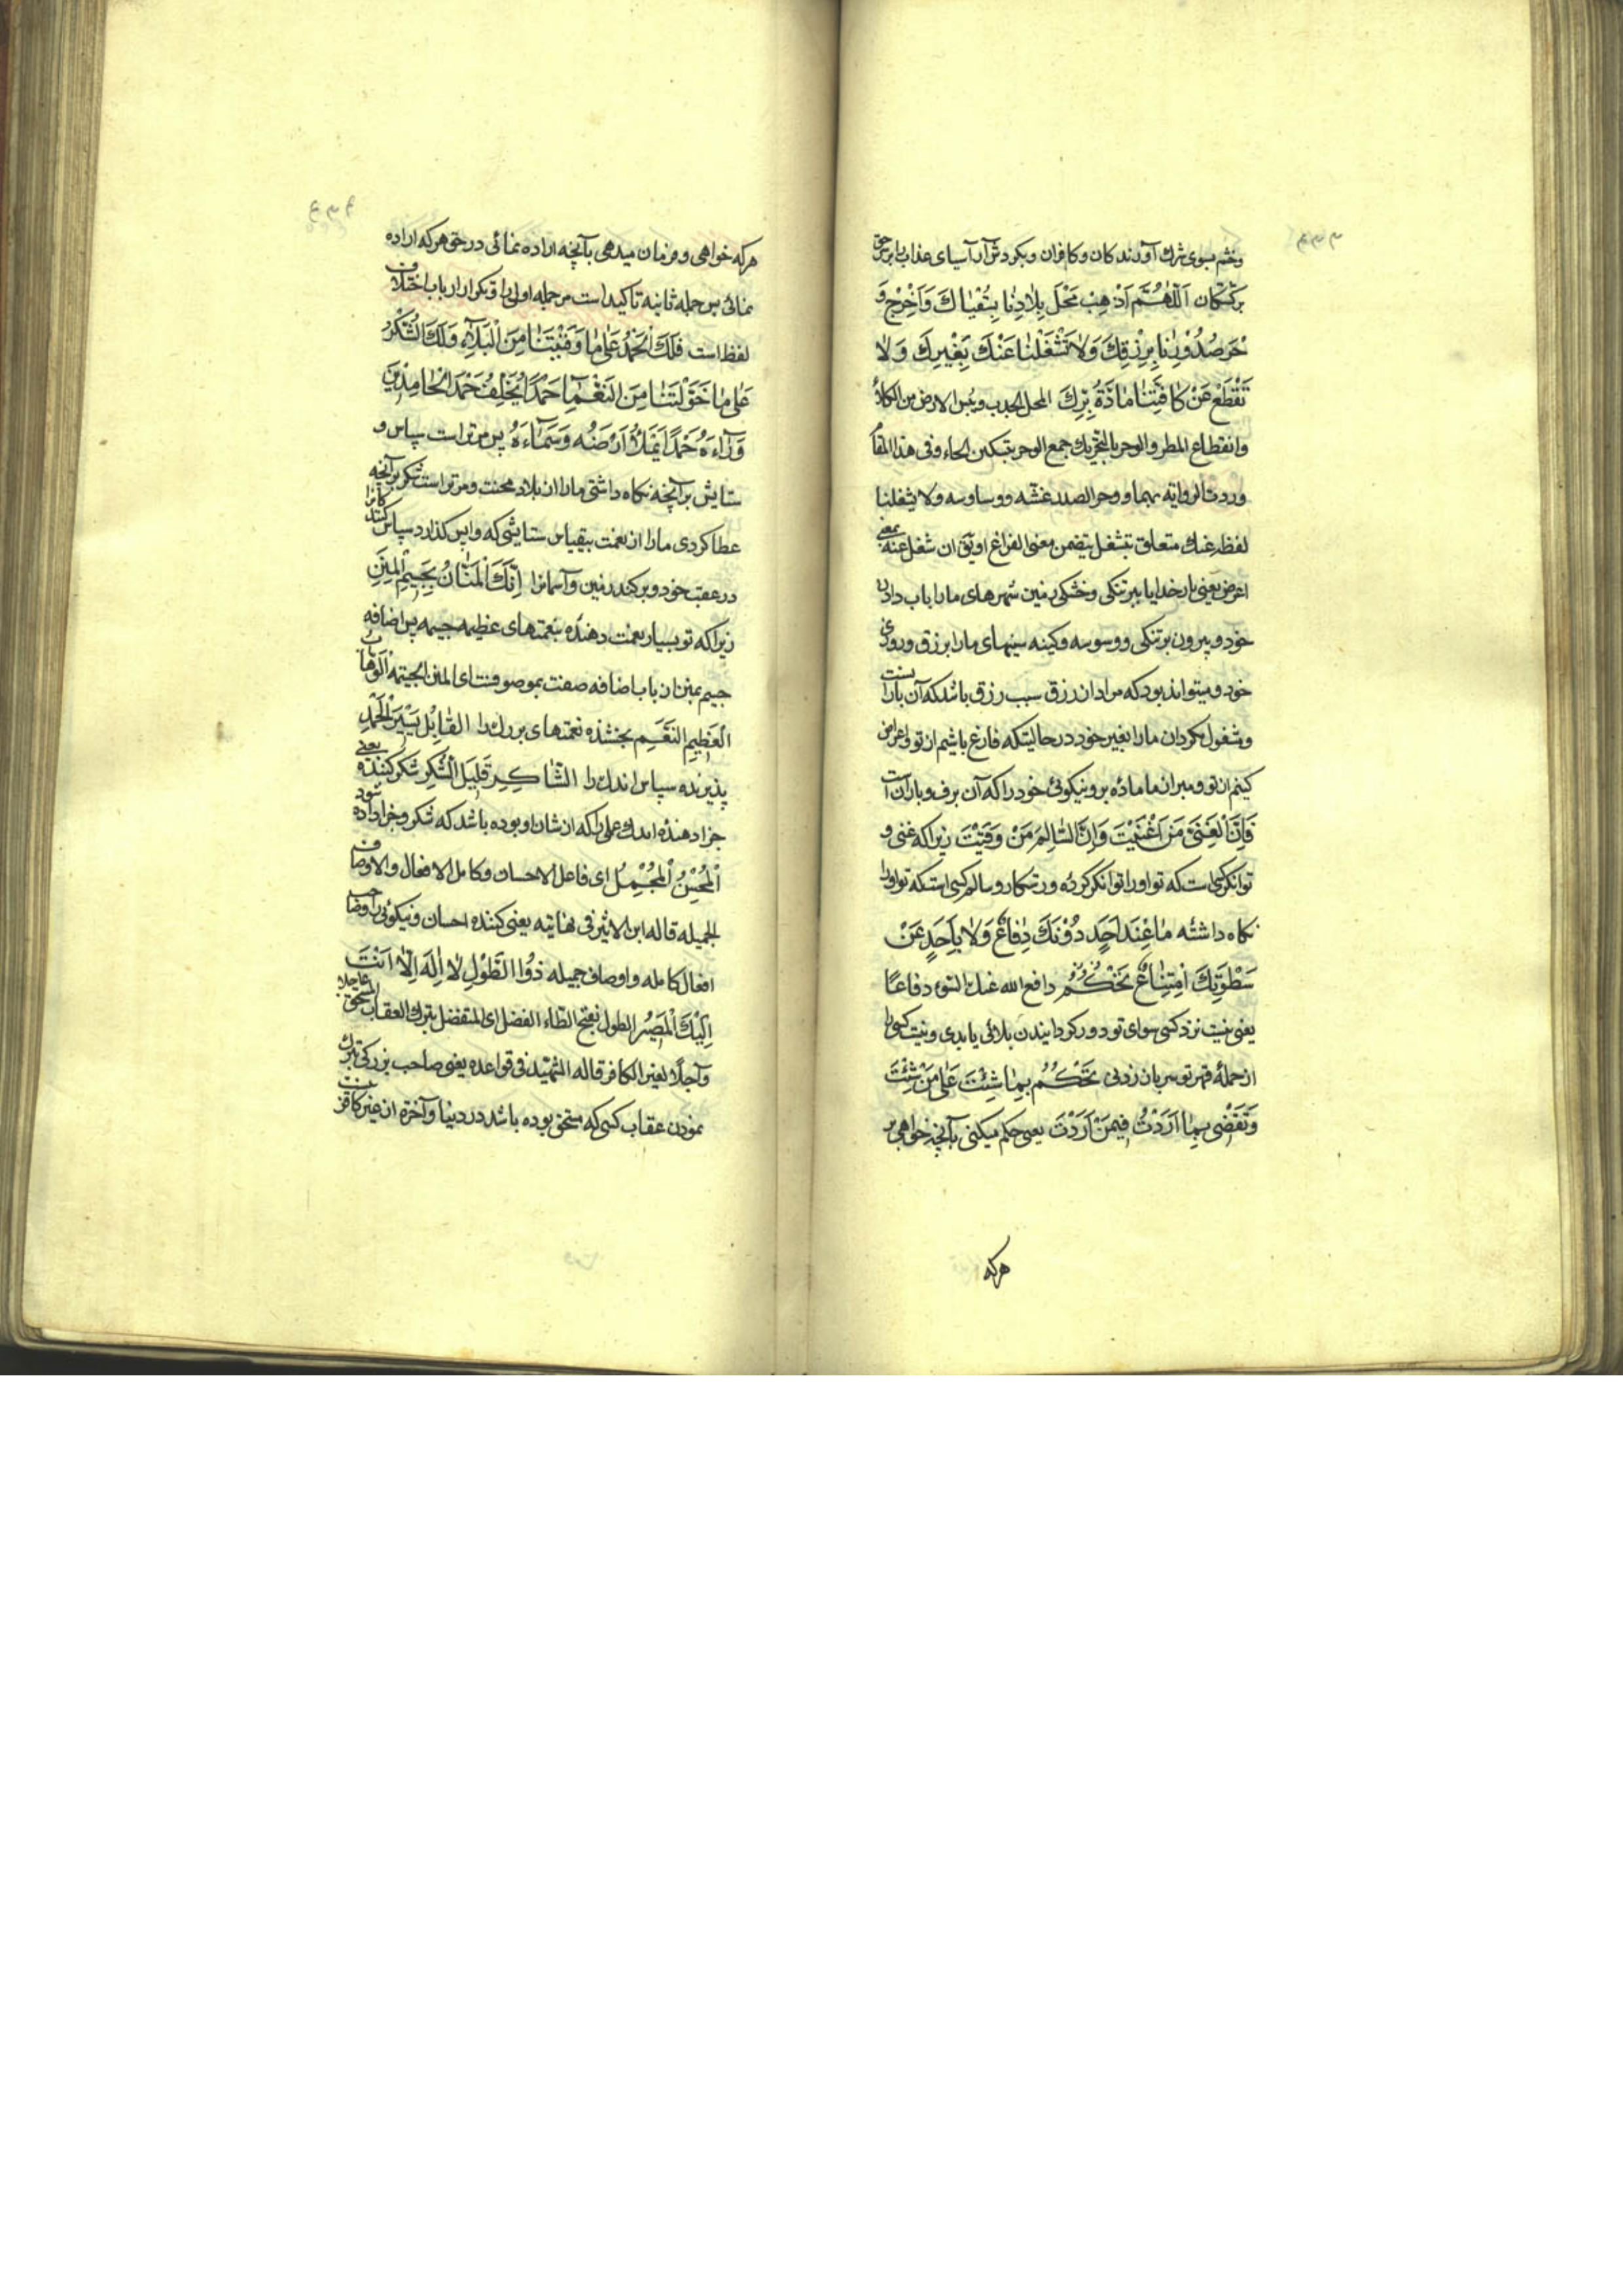 ۴۳۳
وخشم بسوی شرك آورندكان وكافران وبكردش آر آسیای عذاب را بر حق
بركشتكان اَللّٰهُمَّ اَذْهِبْ مَحْلَ بِلاٰدِنٰا بِسُقْیٰاكَ وَاَخْرِجْ وَ
حَرَ صُدُوْرِنٰا بِرِزْقِكَ وَلاٰ تَشْغَلْنٰا عَنْكَ بِغَیْرِكَ وَلاٰ
تَقْطَعْ عَنْ كٰافَّتِنٰا مٰادَّةَ بِرِّكَ المحل الجدب ویبس الارض من الكلاء
وانقطاع المطر والوحر بالتحریك جمع الوحر بتسكین الحاء وفی هذا المقا
وردت الروایة بهما ووحر الصدر غشه ووساوسه ولا یشغلنا
لفظه عنك متعلق بتشغل بتضمن معنی الفراغ او یق ان شغل عنه بمعنی
اعرض یعنی بار خدایا ببر تنكی وخشكی زمین شهرهای ما را باب دادن
خود وبیرون بر تنكی ووسوسه وكینه سینهای ما را برزق وروزی
خود ومیتواند بود كه مراد از رزق سبب رزق باشد كه آن بارانست
ومشغول مكردان ما را بغیر خود در حالیتكه فارغ باشیم از تو واعراض
كنیم از تو ومبر از ما ماده بر ونیكوئی خود را كه آن برف وباران است
فَاِنَّ الْغَنِیَّ مَنْ اَغْنَیْتَ وَاِنَّ السّٰالِمَ مَنْ وَقَیْتَ زیرا كه غنی و
توانكر كسی است كه تو اورا توانكر كرده ورستكار وسالم كسی استكه تو اورا
نكاه داشته مٰا عِنْدَ اَحَدٍ دُوْنَكَ دِفٰاعٌ وَلاٰ بِاَحَدٍ عَنْ
سَطْوَتِكَ اِمْتِنٰاعٌ تَحْكُمُ دافع الله عنك السوء دفاعًا
یعنی نیست نزد كسی سوای تو دور كردانیدن بلائی یا بدی ونیست كسی را
از حملهٔ قهر تو سر باز زدنی تَحْكُمُ بِمٰا شِئْتَ عَلٰی مَنْ شِئْتَ
وَتَقْضٖی بِمٰا اَرَدْتَ فٖیمَنْ اَرَدْتَ یعنی حكم میكنی بآنچه خواهی بر
هركه
۴۳۴
هركه خواهی وفرمان میدهی بآنچه اراده نمائی در حق هركه اراده
نمائی پس جمله ثانیه تاكید است مر جمله اولی را وتكرار ارباب اختلاف
لفظ است فَلَكَ الْحَمْدُ عَلٰی مٰا وَقَیْتَنٰا مِنَ الْبَلاٰءِ وَلَكَ الشُّكْرُ
عَلٰی مٰا خَوَّلْتَنٰا مِنَ النَّعْمٰاءِ حَمْدًا یُخَلِّفُ حَمْدَ الْحٰامِدٖینَ
وَرٰاءَهُ حَمْدًا یَمْلَأُ اَرْضَهُ وَسَمٰاءَهُ پس مر تراست سپاس و
ستایش بر آنچه نكاه داشتی ما را از بلاد محنت ومر تراست شكر بر آنچه
عطا كردی ما را از نعمت بیقیاس ستایشی كه واپس كذارد سپاس كنندكانرا
در عقب خود وپر كند زمین وآسمانرا اِنَّكَ الْمَنّٰانُ بِجَسٖیمِ الْمِنَنِ
زیرا كه تو بسیار نعمت دهندهٔ بنعمتهای عظیمه جسیمه پس اضافه
جسیم بمنن از باب اضافه صفت بموصوفست ای المنن الجسیمه اَلْوَهّٰابُ
الْعَظٖیمِ النِّعَمِ بخشنده نعمتهای بزرك را القٰابِلُ یَسٖیرَ الْحَمْدِ
پذیرنده سپاس اندك را الشّٰاكِرِ قَلٖیلَ الشُّكْرِ شكر كننده یعنی
جزا دهندهٔ اندك عملی را كه از شان او بوده باشد كه شكر وجزا داده شود
اَلْمُحْسِنُ الْمُجْمِلُ ای فاعل الاحسان وكامل الافعال والاوصاف
الجمیله قاله ابن الاثیر فی نهایته یعنی كننده احسان ونیكوئی وصاحب
افعال كامله واوصاف جمیله ذُوْا الطَّوْلِ لاٰ اِلٰهَ اِلاّٰ اَنْتَ
اِلَیْكَ الْمَصٖیرُ الطول بفتح الطاء الفضل ای المتفضل بترك العقاب المستحق عاجلا
وآجلًا لغیر الكافر قاله الشهید فی قواعده یعنی صاحب بزركی بترك
نمودن عقاب كسی كه مستحق بوده باشد در دنیا وآخرة از غیر كافر